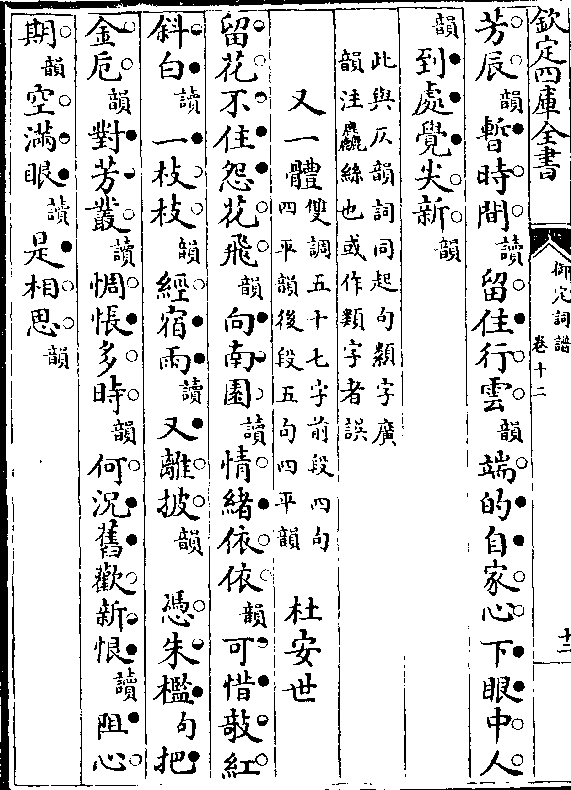 欽定四庫全書
御定詞譜
卷十二
十二
芳辰韻暫時間讀留住行雲韻端的自家心下眼中人
韻到處覺尖新韻
此與仄韻詞同起句纇字廣
韻注麤絲也或作類字者誤
又一體雙調五十七字前段四句
四平韻後段五句四平韻
杜安世
留花不住怨花飛韻向南園讀情緒依依韻可惜敧紅
斜白讀一枝枝韻經宿雨讀又離披韻憑朱檻句把
金卮韻對芳叢讀惆悵多時韻何況舊歡新恨讀阻心
期韻空滿眼讀是相思韻